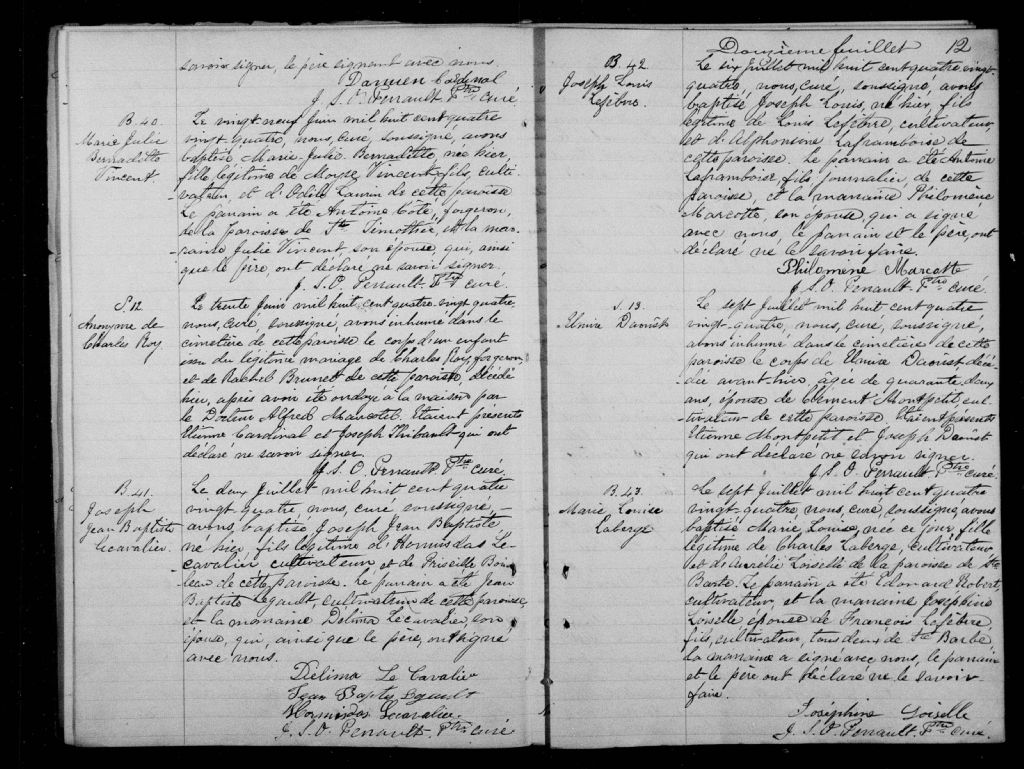 savoir signer, le père signent avec nous.
Damien Cardinal
J. S. O. Perrault Ptre curé
B. 40.
Marie Julie
Bernadette
Vincent.
Le vingt neuf Juin mil huit cent quatre
vingt quatre, nous, curé, soussigné, avons
baptisé Marie-Julie Bernadette, née hier,
fille légitime de Moyse Vincent fils, culti-
vateur, et d'Odile Laurin de cette paroisse
Le parrain a été Antoine Côté, forgeron,
de la paroisse de St Timothée, et la mar-
raine Julie Vincent son épouse qui, ainsi
que le père, ont déclaré ne savoir signer.
J. S. O. Perrault Ptre curé.
S. 12
Anonyme de
Charles Roy
Le trente Juin mil huit cent quatre vingt quatre
nous, curé, soussigné, avons inhumé dans le
cimetière de cette paroisse le corps d'un enfant
issu du légitime mariage de Charles Roy, forgeron,
et de Rachel Brunet de cette paroisse, décédé
hier, après avoir été ondoyé à la maison par
le Docteur Alfred Marcotte. Etaient présents
Etienne Cardinal et Joseph Thibault qui ont
déclaré ne savoir signer.
J. S. O. Perrault Ptre curé.
B. 41.
Joseph
Jean Baptiste
Lecavalier.
Le deux Juillet mil huit cent quatre
vingt quatre, nous, curé soussigné,
avons baptisé Joseph Jean Baptiste
né hier, fils légitime d'Hormisdas Le-
cavalier cultivateur et de Priscille
de cette paroisse. Le parrain a été Jean
Baptiste Legault, cultivateur de cette paroisse,
et la marraine Délima Lecavalier, son
épouse, qui, ainsi que le père, ont signé
avec nous.
Délima Le Cavalier
Jean Bapte Legault
Hormisdas Lecavalier.
J. S. O. Perrault. Ptre curé
Douzième feuillet 12
B. 42
Joseph Louis
Lefebvre.
Le six Juillet mil huit cent quatre vingt
quatre, nous, curé, soussigné, avons
baptisé Joseph Louis, né hier, fils
légitime de Louis Lefebvre, cultivateur,
et d'Alphonsine Laframboise de
cette paroisse. Le parrain a été Antoine
Laframboise fils, journalier, de cette
paroisse, et la marraine Philomène
Marcotte, son épouse, qui a signé
avec nous, le parrain et le père, ont
déclaré ne le savoir faire.
Philomene Marcotte
J. S. O. Perrault. Ptre curé.
S. 13.
Elmire Daoust
Le sept Juillet mil huit cent quatre
vingt-quatre, nous, curé, soussigné,
avons inhumé dans le cimetière de cette
paroisse le corps de Elmire Daoust, décé-
dée avant-hier, âgée de quarante deux
ans, épouse de Clément Montpetit cul-
tivateur de cette paroisse. Etaient présents
Etienne Montpetit et Joseph Daoust
qui ont déclaré ne savoir signer.
J. S. O. Perrault Ptre curé.
B. 43.
Marie Louise
Laberge
Le sept Juillet mil huit cent quatre
vingt-quatre nous, curé, soussigné, avons
baptisé Marie Louise, née ce jour, fille
légitime de Charles Laberge, cultivateur
et d'Aurélie Loiselle de la paroisse de Ste
Barbe. Le parrain a été Edouard Robert,
cultivateur, et la marraine Josephine
Loiselle épouse de François Lefebvre,
fils, cultivateur, tous deux de Ste Barbe
la marraine a signé avec nous, le parrain
et le père ont déclaré ne le savoir
faire.
Joséphine Loiselle
J. S. O. Perrault. Ptre curé.